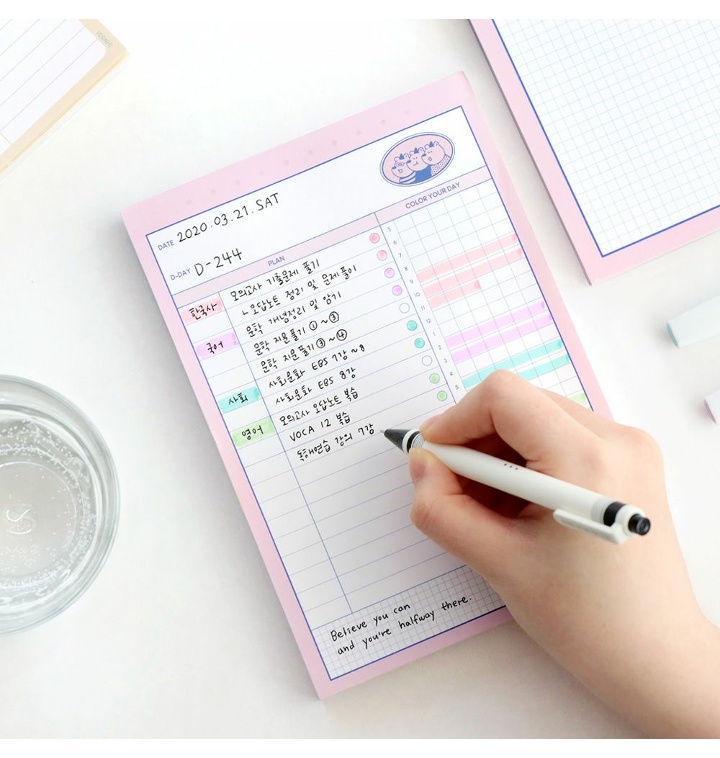 DATE 2020.03.21.SAT
D-DAY D-244
PLAN
COLOR YOUR DAY
한국사 모의고사 기출문제 풀기
ㄴ오답노트 정리 및 문제풀이
국어 문학 개념정리 및 암기
문학 지문풀기 ①~③
문학 지문풀기 ③~④
사회 사회문화 EBS 7강 ~8
사회문화 EBS 8강
영어 모의고사 오답노트 복습
VOCA 12 복습
독해연습 강의 7강
5
6
7
8
9
10
11
12
1
2
3
4
5
Believe you can
and you're halfway there.